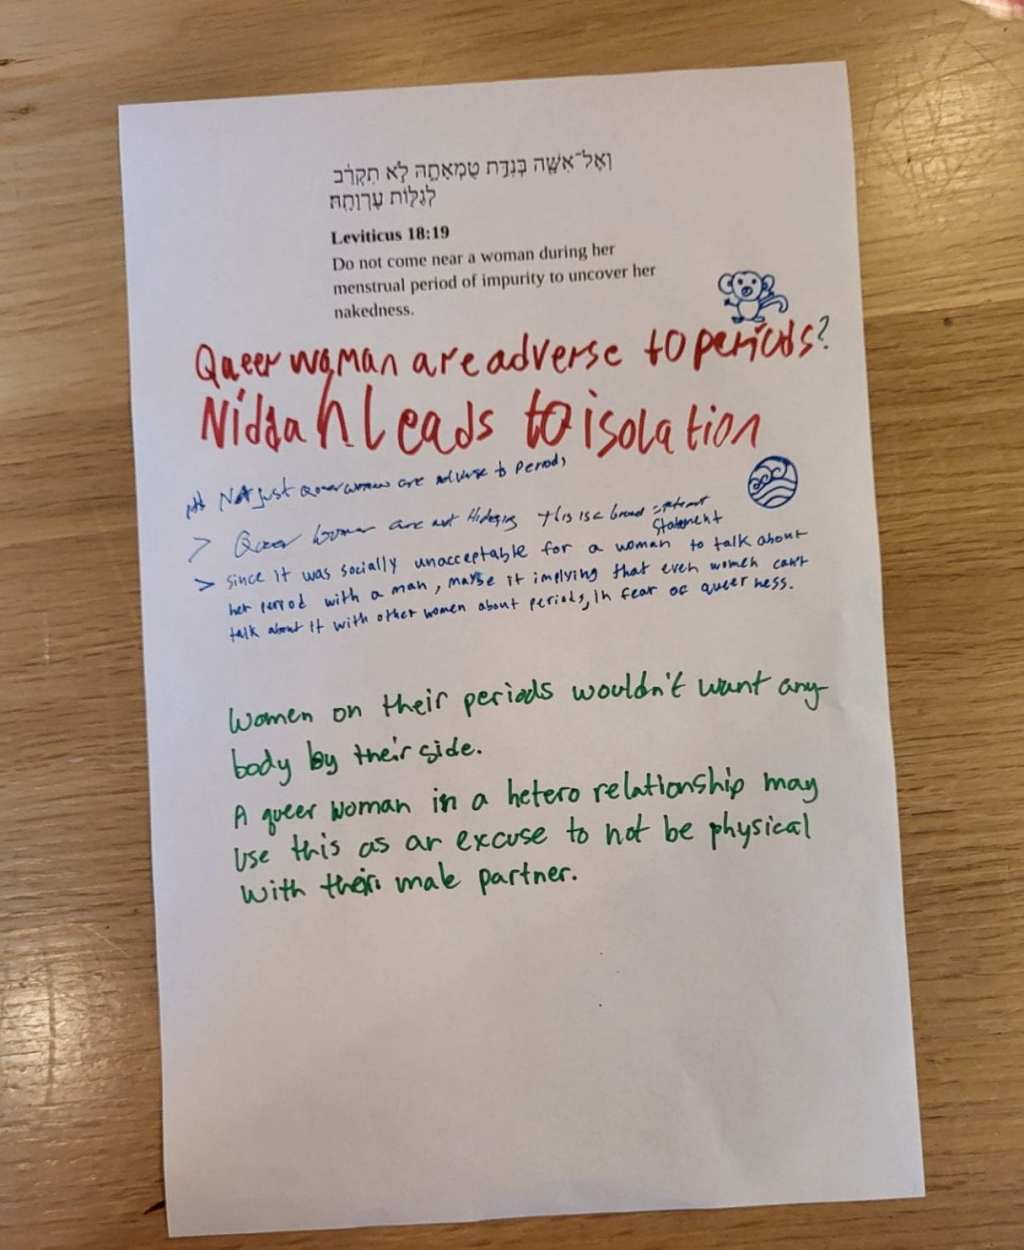 וְאֶל־אִשָּׁ֖ה בְּנִדַּ֣ת טֻמְאָתָ֑הּ לֹ֣א תִקְרַ֔ב
לְגַלּ֖וֹת עֶרְוָתָֽהּ׃
Leviticus 18:19
Do not come near a woman during her
menstrual period of impurity to uncover her
nakedness.
Queer woman are adverse to periods?
Niddah leads to isolation
Not just Queer women are adverse to periods
> Queer women are not This is a broad
statement
> since it was socially unacceptable for a woman to talk about
her period with a man, maybe it implying that even women can't
talk about it with other women about periods, in fear of queerness.
Women on their periods wouldn't want any
body by their side.
A queer woman in a hetero relationship may
use this as an excuse to not be physical
with their male partner.